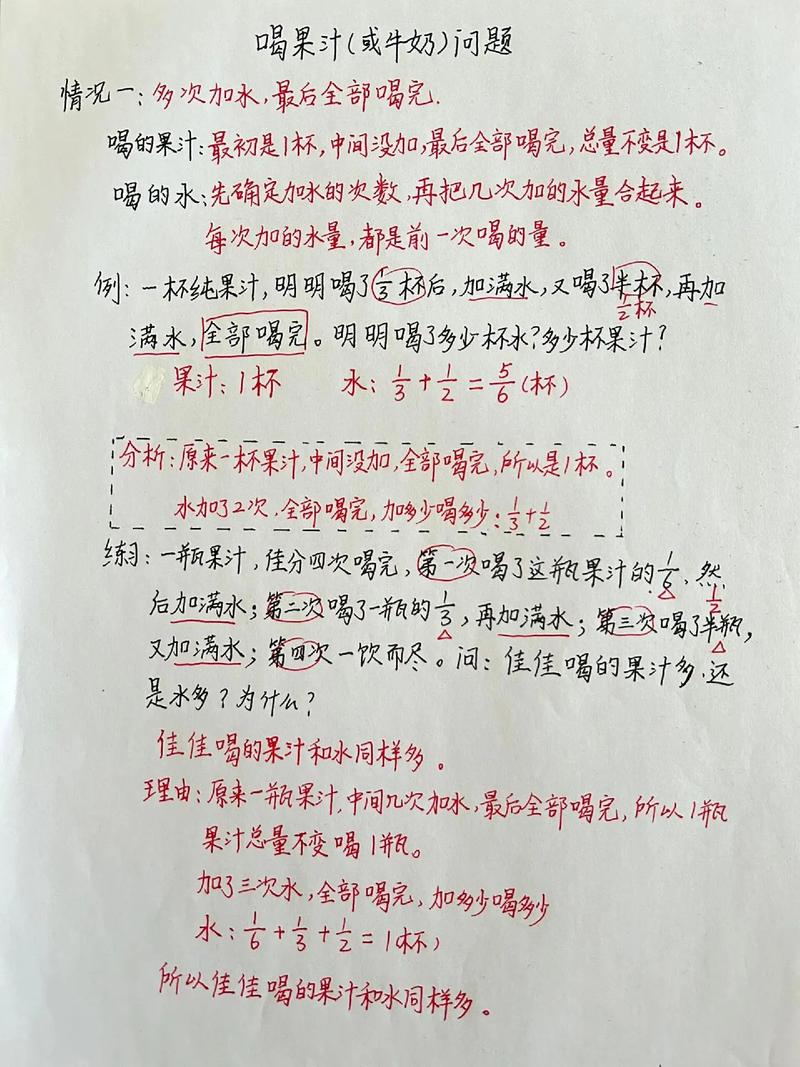 喝果汁(或牛奶)问题
情况一:多次加水,最后全部喝完.
喝的果汁:最初是1杯,中间没加,最后全部喝完,总量不变是1杯。
喝的水:先确定加水的次数,再把几次加的水量合起来。
每次加的水量,都是前一次喝的量。
例:一杯纯果汁,明明喝了1/3杯后,加满水,又喝了半杯,再加
1/2杯
满水,全部喝完。明明喝了多少杯水?多少杯果汁?
果汁:1杯 水:1/3+1/2=5/6(杯)
分析:原来一杯果汁,中间没加,全部喝完,所以是1杯。
水加了2次,全部喝完,加多少喝多少:1/3+1/2
练习:一瓶果汁,佳分四次喝完,第一次喝了这瓶果汁的1/6,然
1/2
后加满水;第二次喝了一瓶的1/3,再加满水;第三次喝了半瓶,
又加满水;第四次一饮而尽。问:佳佳喝的果汁多,还
是水多?为什么?
佳佳喝的果汁和水同样多。
理由:原来一瓶果汁,中间几次加水,最后全部喝完,所以1瓶
果汁总量不变喝1瓶。
加了三次水,全部喝完,加多少喝多少
水:1/6+1/3+1/2=1(杯)
所以佳佳喝的果汁和水同样多。